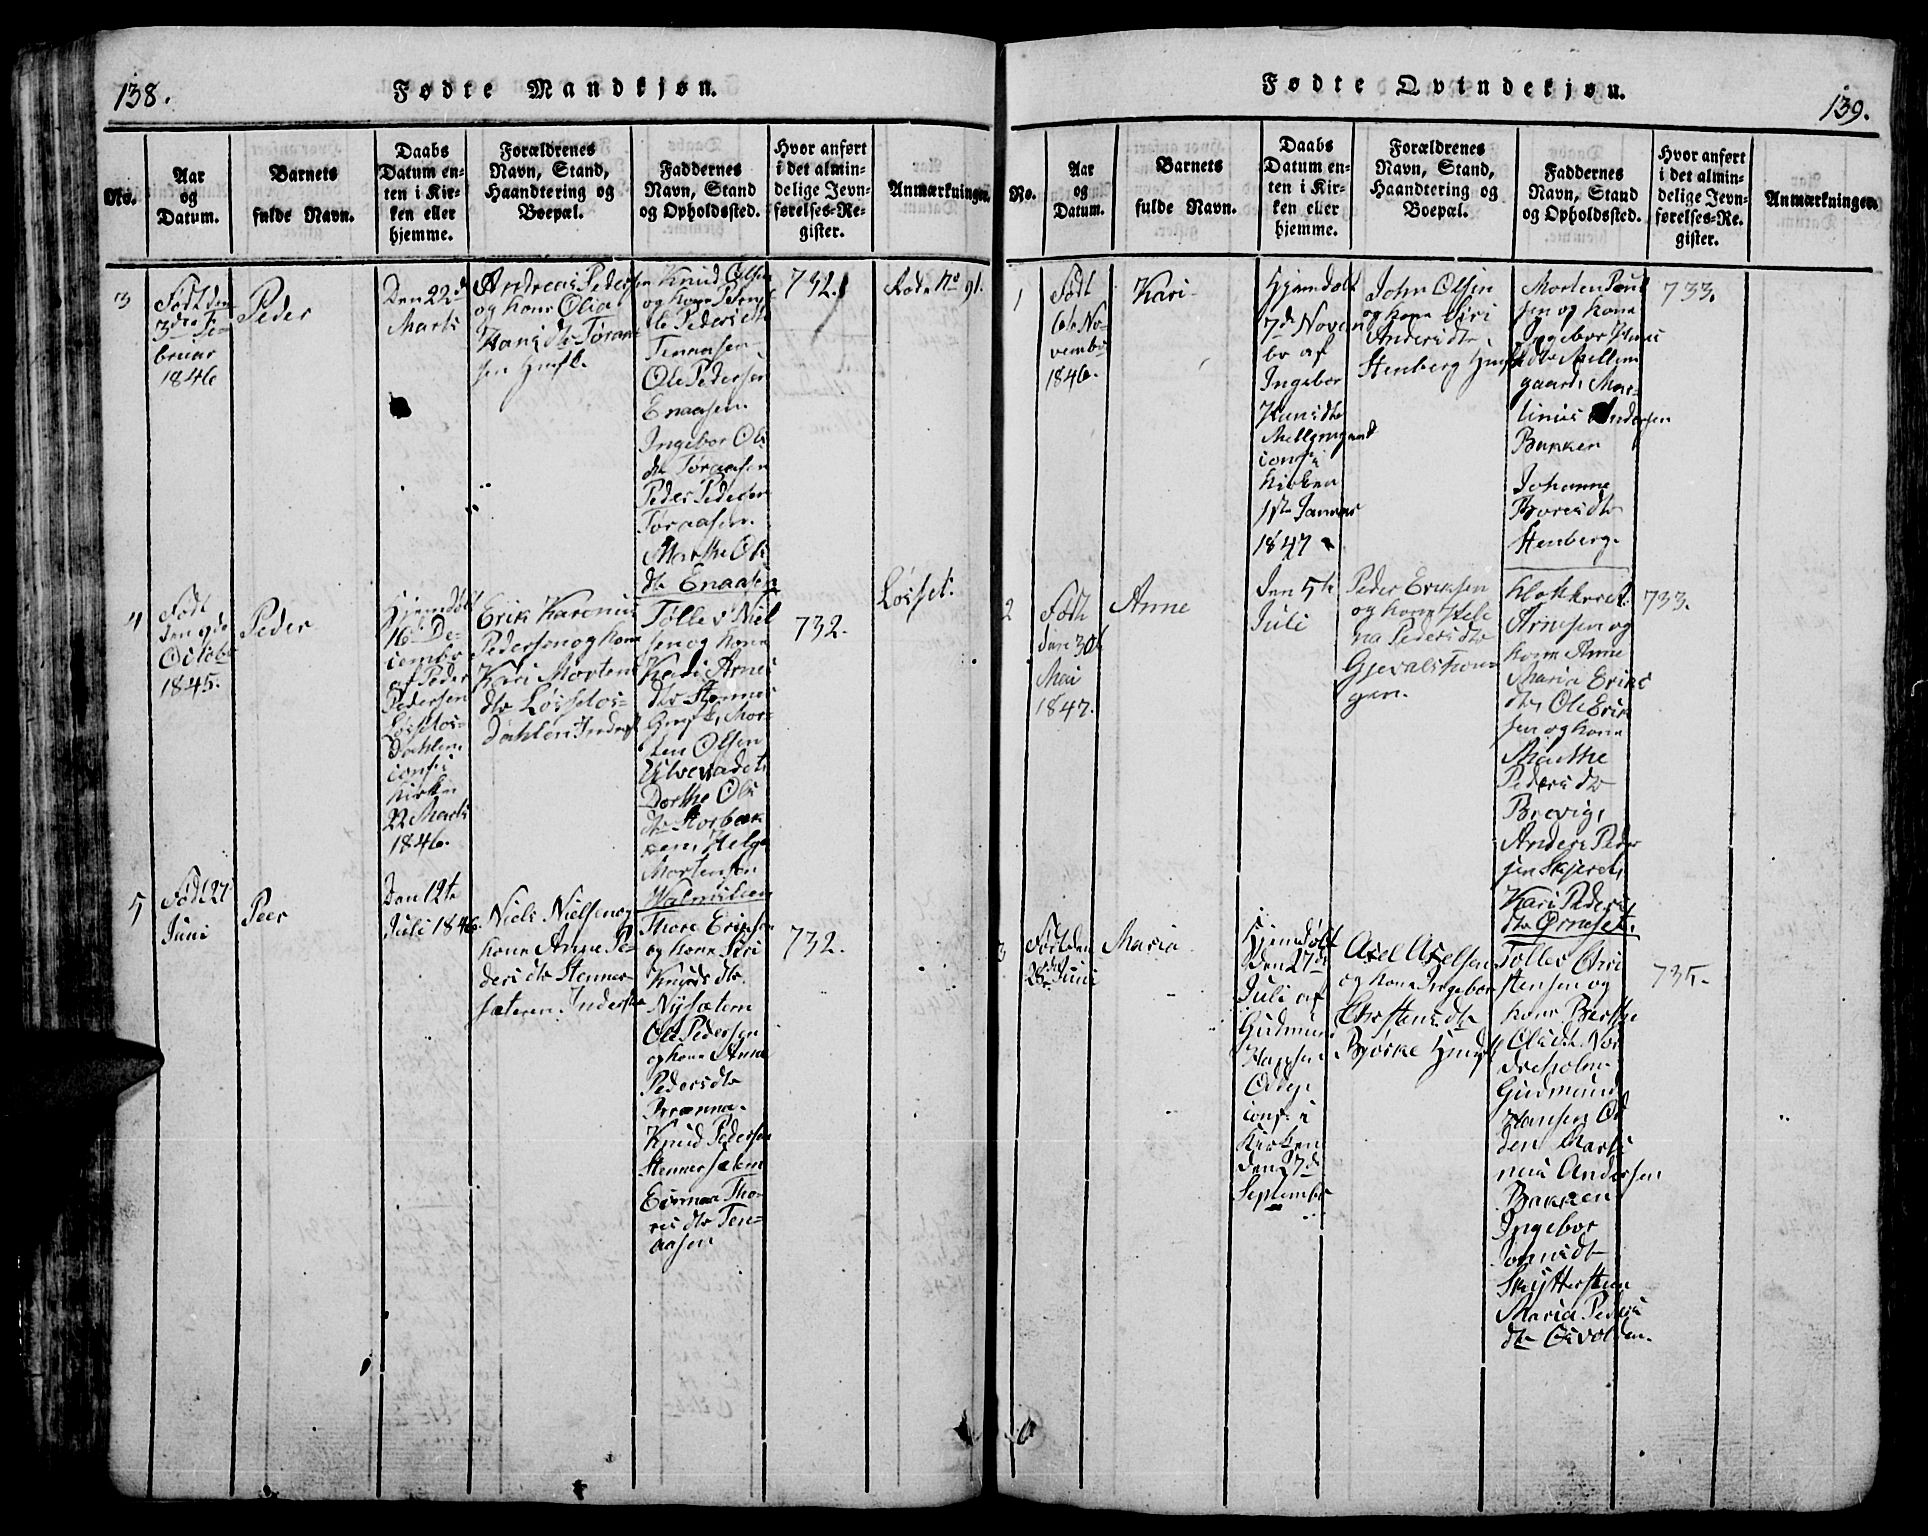 138.
Fødte Mandkjøn.
No.
Aar
og
Datum.
Barnets
fulde Navn.
Daabs
Datum en-
ten i Kir-
ken eller
hjemme.
Forældrenes
Navn, Stand,
Haandtering og
Boepæl.
Faddernes
Navn, Stand
og Opholdssted.
Hvor anført
i det almin-
delige Jevn-
førelses-Re-
gister.
Anmærkninger.
3
Født den
3die Fe-
bruar
1846
Peder
Den 22d
Marts
Andreas Pedersen
og kone Olia
Hans dtr
Knud Olsen
og kone
Pedersdtr
Tenaasen
Ole Pedersen
Enaasen.
Ingebor Ols
dtr Toraasen
Peder Pedersen
Toraasen.
Marthe Ols
dtr Enaasen
732.
No 91.
4
Født
den 9de
October
1845.
Peder
Hjemdøbt
16de De-
cember
af Peder
Pedersen
Løssetos-
Dahlen
conf. i
kirken
22 Marts
1846.
Erik Karenius
Pedersen og kone
Kari Mortens
dtr Løssetos-
Dahlen Inderst
Tollef Niel
sen og kone
Kari Arnes
dtr
Mor-
ten Olsen
Ulvevadet
Dorthe Ols
dtr Storbæk
ken, Helge
Mortensen
732.
Løsset.
5
Født 27
Juni
Peer
Den 12te
Juli 1846.
Niels Nielsen og
kone Anne Pe-
dersdtr Stenner-
sæteren. Inderster
Thore Eriksen
og kone Siri
Knudsdtr
Nysætern
Ole Pedersen
og kone Anne
Pedersdtr
Brænna.
Knud Pedersen
Stennersætern
Tho-
resdtr Ten-
aasen
732.
139.
Fødte Qvindekjøn.
No.
Aar
og
Datum.
Barnets
fulde Navn.
Daabs
Datum en-
ten i Kir-
ken eller
hjemme.
Forældrenes
Navn, Stand,
Haandtering og
Boepæl.
Faddernes
Navn, Stand
og Opholdssted.
Hvor anført
i det almin-
delige Jevn-
førelses-Re-
gister.
Anmærkninger.
1
Født
6te No-
vember
1846.
Kari
Hjemdøbt
7de Novem
br af
Ingebor
Hansdtr
Mellemgaard
conf. i
kirken
1ste Januar
1847
John Olsen
og kone Siri
Andersdtr
Stenberg
Morten Paul
sen og kone
Ingebor Hans
dtr Mellem
gaard, Mar-
tinus Andersen
Bakken
Johanne
Toresdtr
Stenberg.
733.
2
Født
den 30te
Mai
1847.
Anne
Den 5te
Juli
Peder Eriksen
og kone Hele
na Pedersdtr
Gjevalshau-
gen.
Arnesen og
kone Anne
Maria Eriks
dtr, Ole Erik
sen og kone
Marthe
Pedersdtr
Brevig,
Anders Peder
sen
Kari Peders
dtr Ørneset.
733.
3
Født den
28de Juni
Maria
Hjemdøbt
den 17de
Juli af
Gudmund
Hansen
Odden
conf. i
Kirken
den 27de
September
Axel Axelsen
og kone Ingebor
Christensdtr
Bjørke
Tollef Chri
stensen og
kone Berthe
Olsdtr Nor
dreholm
Gudmund
Hansen Od
den Marti
nus Andersen
Bakken
Ingebor
Jonnsdtr
Maria Peders
dtr
735.